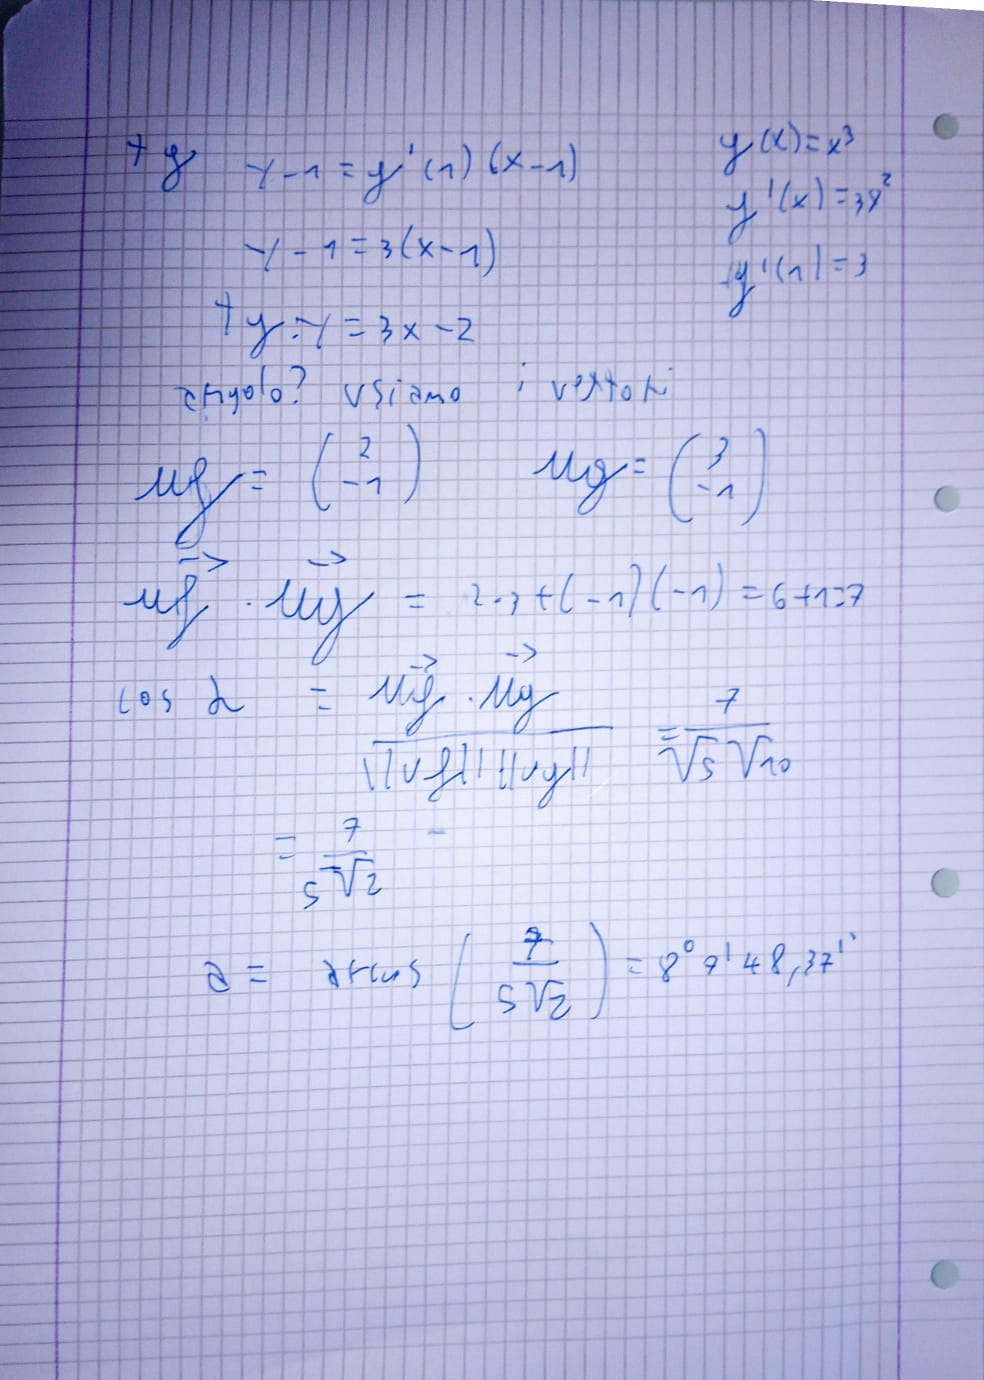 ty y-1=y'(1)(x-1) y(x)=x³
y'(x)=3x²
y-1=3(x-1) y'(1)=3
ty: y=3x-2
angolo? usiamo i vettori
uf = (2 -1) ug = (3 -1)
uf · ug = 2·3+(-1)(-1)=6+1=7
cos α = uf · ug / ||uf|| ||ug|| = 7 / √5 √10
= 7 / 5√2
α = arcos (7 / 5√2) = 8° 7' 48,37''